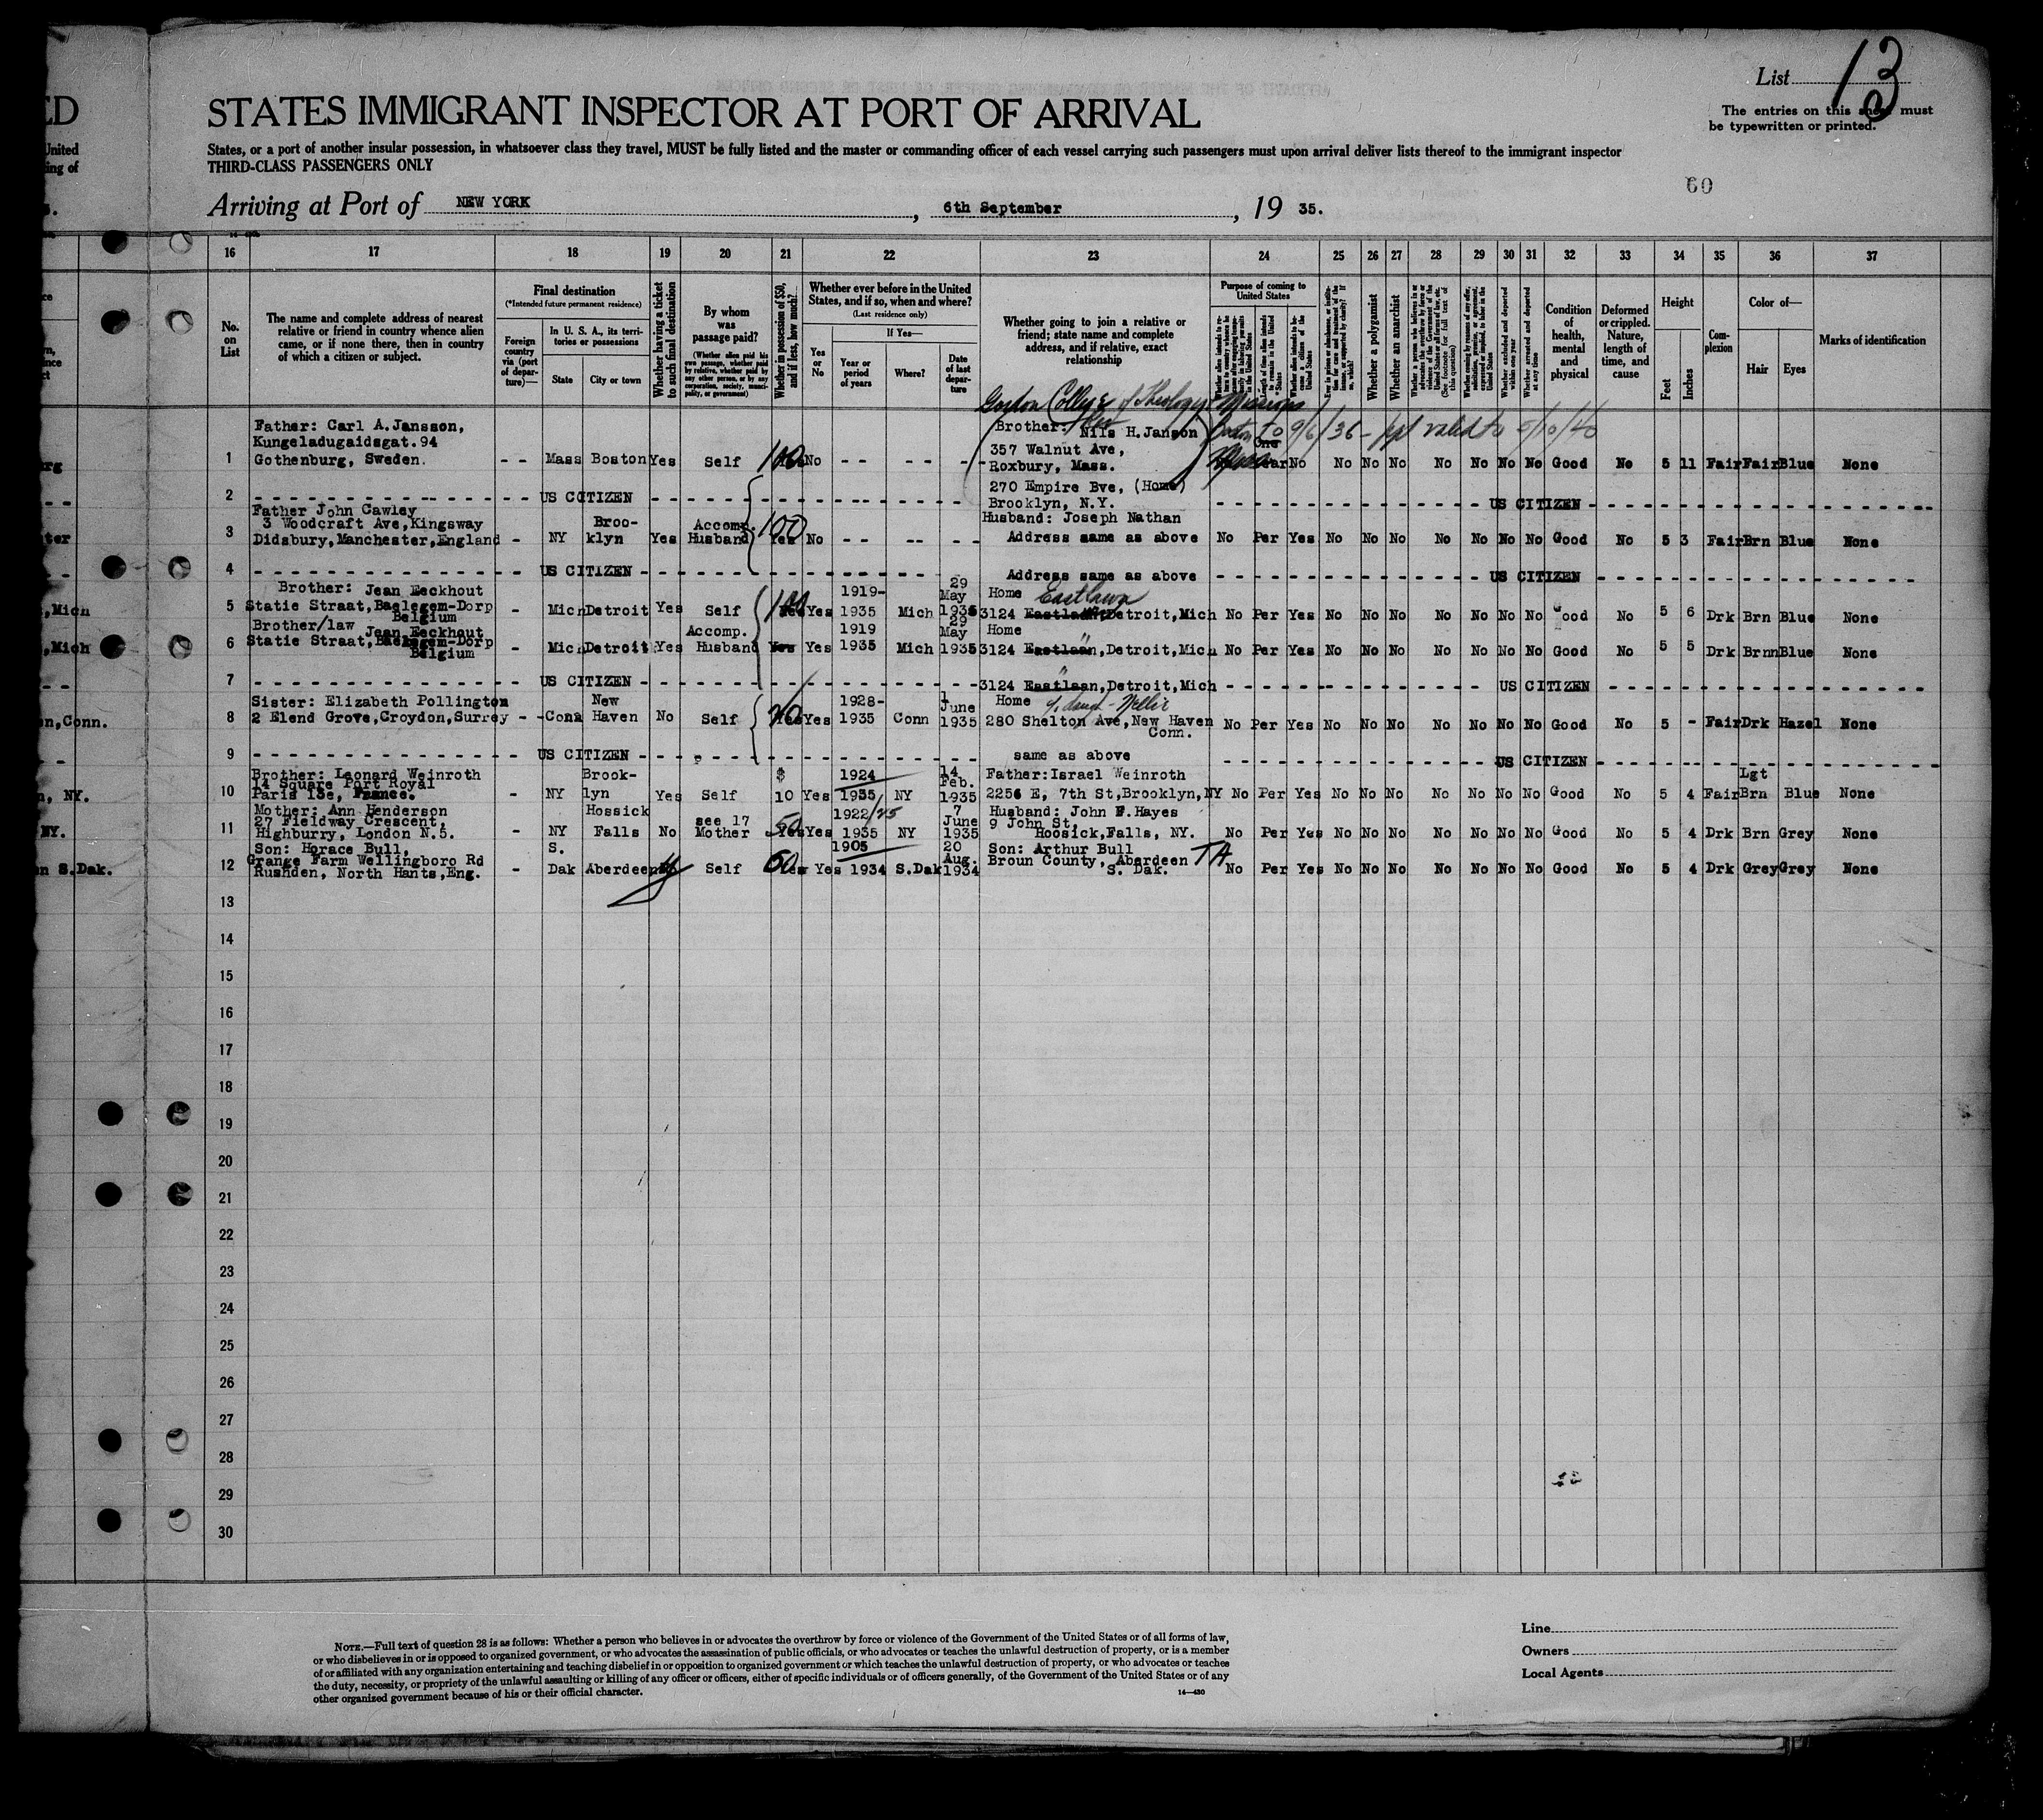 List 13
The entries on this sheet must
be typewritten or printed.
ED
STATES IMMIGRANT INSPECTOR AT PORT OF ARRIVAL
United
ing of
States, or a port of another insular possession, in whatsoever class they travel, MUST be fully listed and the master or commanding officer of each vessel carrying such passengers must upon arrival deliver lists thereof to the immigrant inspector
THIRD-CLASS PASSENGERS ONLY
60
Arriving at Port of NEW YORK, 6th September, 19 35.
16 17 18 19 20 21 22 23 24 25 26 27 28 29 30 31 32 33 34 35 36 37
No. on List
The name and complete address of nearest
relative or friend in country whence alien
came, or if none there, then in country
of which a citizen or subject.
Final destination
(*Intended future permanent residence)
Foreign country via (port of departure)—
In U. S. A., its territories or possessions
State
City or town
Whether having a ticket to such final destination
By whom was passage paid?
(Whether alien paid his own passage, whether paid by relative, whether paid by any other person, or by any corporation, society, municipality, or government)
Whether in possession of $50, and if less, how much?
Whether ever before in the United States, and if so, when and where?
(Last residence only)
Yes or No
If Yes—
Year or period of years
Where?
Date of last departure
Whether going to join a relative or
friend; state name and complete
address, and if relative, exact
relationship
Purpose of coming to United States
Whether a polygamist
Whether an anarchist
(See footnote for full text of this question)
Whether excluded and deported within one year
Whether arrested and deported at any time
Condition of health, mental and physical
Deformed or crippled. Nature, length of time, and cause
Height
Feet
Inches
Complexion
Color of—
Hair
Eyes
Marks of identification
Gordon College of Theology & Missions
Boston to 9/6/36 - ppt valid to 5/10/40
Father: Carl A.Jansson,
Kungeladugaidsgat.94
Brother: Nils H.Janson
357 Walnut Ave,
1 Gothenburg, Sweden. - - Mass Boston Yes Self 100 No - - - - - - Roxbury, Mass. No No No No No No No No Good No 5 11 Fair Fair Blue None
270 Empire Bve, (Home)
2 US CITIZEN Brooklyn, N.Y. US CITIZEN
Father John Cawley
3 Woodcraft Ave,Kingsway Broo- Accomp. Husband: Joseph Nathan
3 Didsbury,Manchester,England - NY klyn Yes Husband 100 Yes No - - -- - - Address same as above No Per Yes No No No No No No No Good No 5 3 Fair Brn Blue None
4 US CITIZEN Address same as above US CITIZEN
Brother: Jean Eeckhout 1919- 29 May Home Eastlawn
5 Statie Straat,Baelegem-Dorp Belgium - Mich Detroit Yes Self 100 Yes 1935 Mich 1935 3124 Detroit,Mich No Per Yes No No No No No No No Good No 5 6 Drk Brn Blue None
Brother/law Jean Eeckhout Accomp. 1919 29 May Home
6 Statie Straat,Baelegem-Dorp Belgium - Mich Detroit Yes Husband Yes Yes 1935 Mich 1935 3124 Eastlaan,Detroit,Mich No Per Yes No No No No No No No Good No 5 5 Drk Brnn Blue None
7 US CITIZEN 3124 Eastlaan,Detroit,Mich US CITIZEN
Sister: Elizabeth Pollington New 1928- 1 June Home & daugh - Nellie
8 2 Elend Grove,Croydon,Surrey - - Conn Haven No Self 20 Yes 1935 Conn 1935 280 Shelton Ave,New Haven Conn. No Per Yes No No No No No No No Good No 5 - Fair Drk Hazel None
9 US CITIZEN same as above US CITIZEN
Brother: Leonard Weinroth Brook- $ 1924 14 Feb. Father:Israel Weinroth Lgt
14 Square Port Royal
10 Paris 13e, France. - NY lyn Yes Self 10 Yes 1935 NY 1935 2256 E, 7th St,Brooklyn,NY No Per Yes No No No No No No No Good No 5 4 Fair Brn Blue None
Mother: Ann Henderson Hossick 1922/25 7 Husband: John F.Hayes
27 Fieldway Crescent, see 17 June 9 John St,
11 Highburry, London N.5. - NY Falls No Mother 50 Yes Yes 1935 NY 1935 Hoosick,Falls, NY. No Per Yes No No No No No No No Good No 5 4 Drk Brn Grey None
Son: Horace Bull, S. 1905 20 Son: Arthur Bull
Grange Farm Wellingboro Rd Aug. Broun County, Aberdeen
12 Rushden, North Hants,Eng. - Dak Aberdeen Self 50 Yes Yes 1934 S.Dak 1934 S. Dak. No Per Yes No No No No No No No Good No 5 4 Drk Grey Grey None
,Mich
,Mich
en,Conn.
n, NY.
NY.
en S.Dak.
13
14
15
16
17
18
19
20
21
22
23
24
25
26
27
28
29
30
NOTE.—Full text of question 28 is as follows: Whether a person who believes in or advocates the overthrow by force or violence of the Government of the United States or of all forms of law,
or who disbelieves in or is opposed to organized government, or who advocates the assassination of public officials, or who advocates or teaches the unlawful destruction of property, or is a member
of or affiliated with any organization entertaining and teaching disbelief in or opposition to organized government or which teaches the unlawful destruction of property, or who advocates or teaches
the duty, necessity, or propriety of the unlawful assaulting or killing of any officer or officers, either of specific individuals or of officers generally, of the Government of the United States or of any
other organized government because of his or their official character.
14—430
Line
Owners
Local Agents